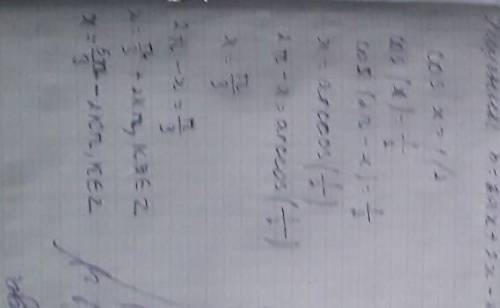 cos x = 1/2
cos (x) = 1/2
cos (2π - x) = 1/2
x = arccos (1/2)
2π - x = arccos (1/2)
x = π/3
2π - x = π/3
x = π/3 + 2kπ, k ∈ Z
x = 5π/3 - 2kπ, k ∈ Z